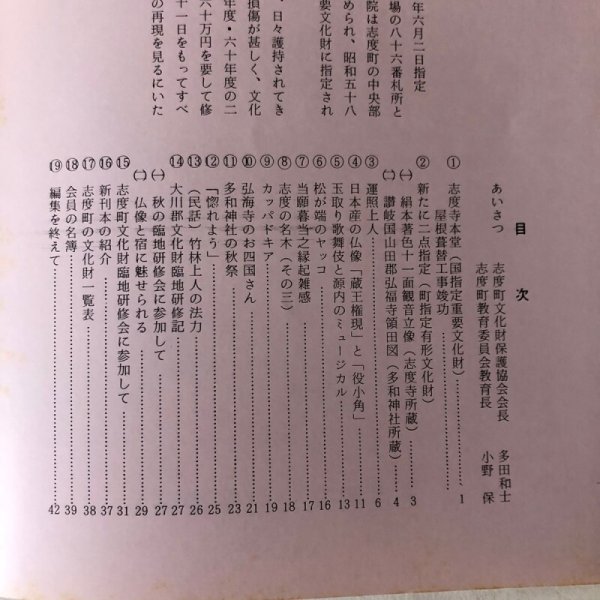 年六月二日指定
場の八十六番札所と
院は志度町の中央部
められ、昭和五十八
要文化財に指定され
、日々護持されてき
損傷が甚しく、文化
年度・六十年度の二
六十万円を要して修
十一日をもってすべ
の再現を見るにいた
目次
あいさつ 志度町文化財保護協会会長 多田和士
志度町教育委員会教育長 小野保
① 志度寺本堂(国指定重要文化財)
屋根葺替工事竣功……1
② 新たに二点指定(町指定有形文化財)
㈠ 絹本著色十一面観音立像(志度寺所蔵)……3
㈡ 讃岐国山田郡弘福寺領田図(多和神社所蔵)……4
③ 運照上人……6
④ 日本産の仏像「蔵王権現」と「役小角」……11
⑤ 玉取り歌舞伎と源内のミュージカル……13
⑥ 松が端のヤッコ……16
⑦ 当願暮当之縁起雑感……17
⑧ 志度の名木(その三)……18
⑨ カッパドキア……19
⑩ 弘海寺のお四国さん……21
⑪ 多和神社の秋祭……23
⑫ 「惚れよう」……25
⑬ (民話)竹林上人の法力……26
⑭ 大川郡文化財臨地研修記……27
㈠ 秋の臨地研修会に参加して……27
㈡ 仏像と宿に魅せられる……29
⑮ 志度町文化財臨地研修会に参加して……31
⑯ 新刊本の紹介……37
⑰ 志度町の文化財一覧表……38
⑱ 会員の名簿……39
⑲ 編集を終えて……42